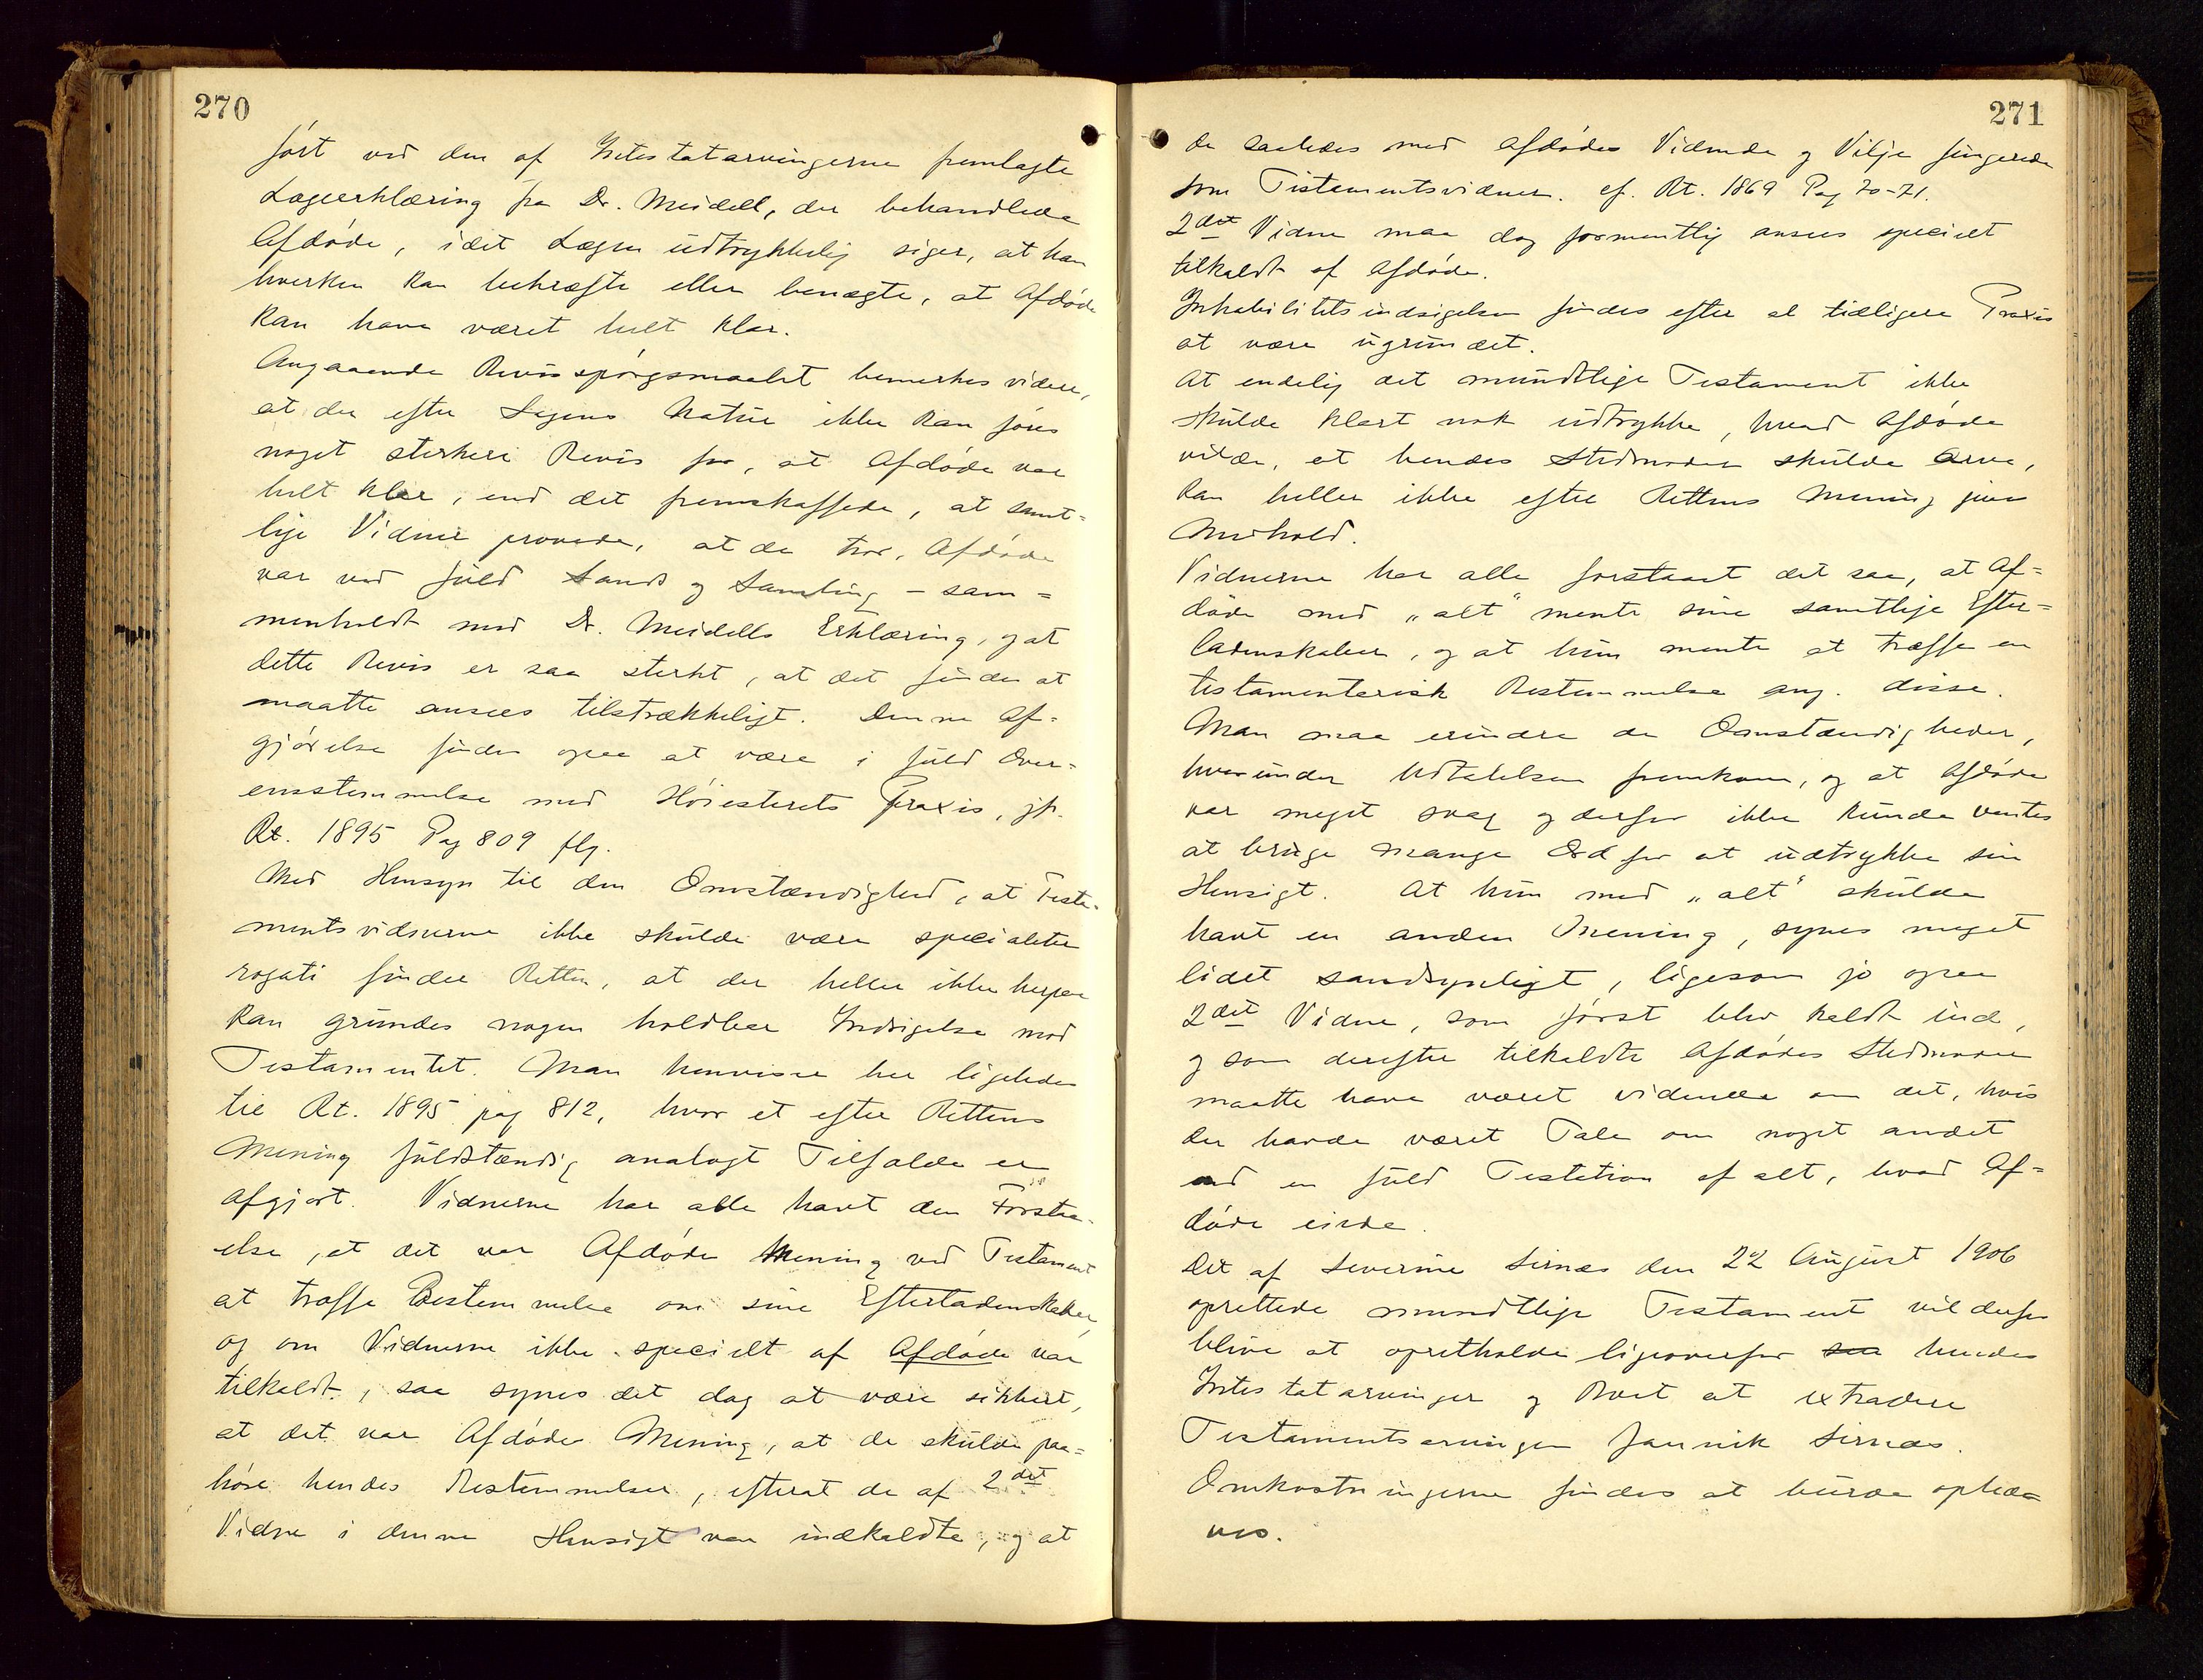 270
ført ved den af Intestatarvingerne fremlagte
Lægeerklæring fra Dr. Meidell, der behandlede
Afdøde, idet Lægen udtrykkelig siger, at han
hverken kan bekræfte eller benægte, at Afdøde
kan have været helt klar.
Angaaende Bevisspørgsmaalet bemerkes videre,
at der efter Sagens Natur ikke kan føres
noget sterkere Bevis for, at Afdøde var
helt klar, end det fremskaffede, at samt-
lige Vidner provede, at de tror, Afdøde
var ved fuld Sands og Samling – sam-
menholdt med Dr. Meidells Erklæring, og at
dette Bevis er saa sterkt, at det findes at
maatte ansees tilstrækkeligt. Denne Af-
gjørelse findes ogsaa at være i fuld Over-
ensstemmelse med Høiesterets Praxis, jfr.
Rt. 1895 Pag 809 flg.
Med Hensyn til den Omstændighed, at Testa-
mentsvidnerne ikke skulde være specialiter
rogati finder Retten, at der heller ikke herpaa
kan grundes nogen holdbar Indsigelse mod
Testamentet. Man henviser her ligeledes
til Rt. 1895 pag 812, hvor et efter Rettens
Mening fuldstændig analogt Tilfælde er
afgjort. Vidnerne har alle havt den Forstaa-
else, at det var Afdødes Mening ved Testament
at træffe Bestemmelse om sine Efterladenskaber,
og om Vidnerne ikke specielt af Afdøde var
tilkaldt, saa synes det dog at være sikkert,
at det var Afdødes Mening, at de skulde paa-
høre hendes Bestemmelser, efterat de af 2det
Vidne i denne Hensigt var indkaldte, og at
271
de saaledes med Afdødes Vidende og Vilje fungerede
som Testamentsvidner. cf. Rt. 1869 Pag 70-71.
2det Vidne maa dog formentlig ansees specielt
tilkaldt af Afdøde.
Inhabilitetsindsigelsen findes efter al tidligere Praxis
at være ugrundet.
At endelig det mundtlige Testament ikke
skulde klart nok udtrykke, hvad Afdøde
vilde, at hendes Stedmoder skulde arve,
kan heller ikke efter Rettens Mening gives
Medhold.
Vidnerne har alle forstaaet det saa, at Af-
døde med "alt" mente sine samtlige Efter-
ladenskaber, og at hun mente at træffe en
testamentarisk Bestemmelse ang. disse.
Man maa erindre de Omstændigheder,
hvorunder Udtalelsen fremkom, og at Afdøde
var meget svag og derfor ikke kunde ventes
at bruge mange Ord for at udtrykke sin
Hensigt. At hun med "alt" skulde
havt en anden Mening, synes meget
lidet sandsynligt, ligesom jo ogsaa
2det Vidne, som først blev kaldt ind,
og som derefter tilkaldte Afdødes Stedmoder
maatte have været vidende om det, hvis
der havde været Tale om noget andet
end en fuld Testation af alt, hvad Af-
døde eiede.
Det af Severine Sirnæs den 22 August 1906
oprettede mundtlige Testament vil derfor
blive at opretholde ligeoverfor hendes
Intestatarvinger og Boet at extradere
Testamentsarvingen Jannik Sirnæs.
Omkostningerne findes at burde ophæ-
ves.